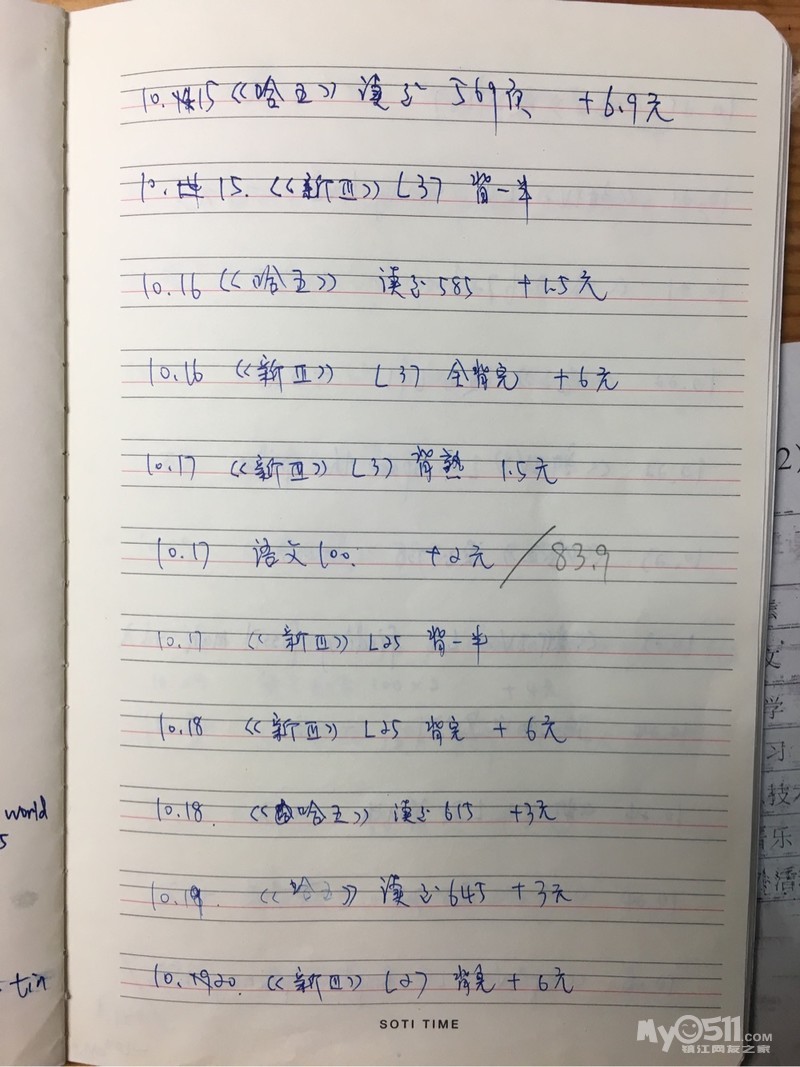 10.15《哈五》读至 569页 +6.9元
10. 15.《新Ⅲ》L37 背一半
10.16《哈五》 读至585 +1.5元
10.16《新Ⅲ》 L37 全背完 +6元
10.17《新Ⅲ》L37 背熟 1.5元
10.17 语文100. +2元 / 83.9
10.17《新Ⅲ》L25 背一半
10.18《新Ⅲ》L25 背完 +6元
10.18.《哈五》读至615 +3元
10.19.《哈五》读至645 +3元
10.20.《新Ⅲ》L27 背完 +6元
SOTI TIME
world
5
tin
2)
文
学
习
技
音乐
活
My0511.COM
镇江网友之家